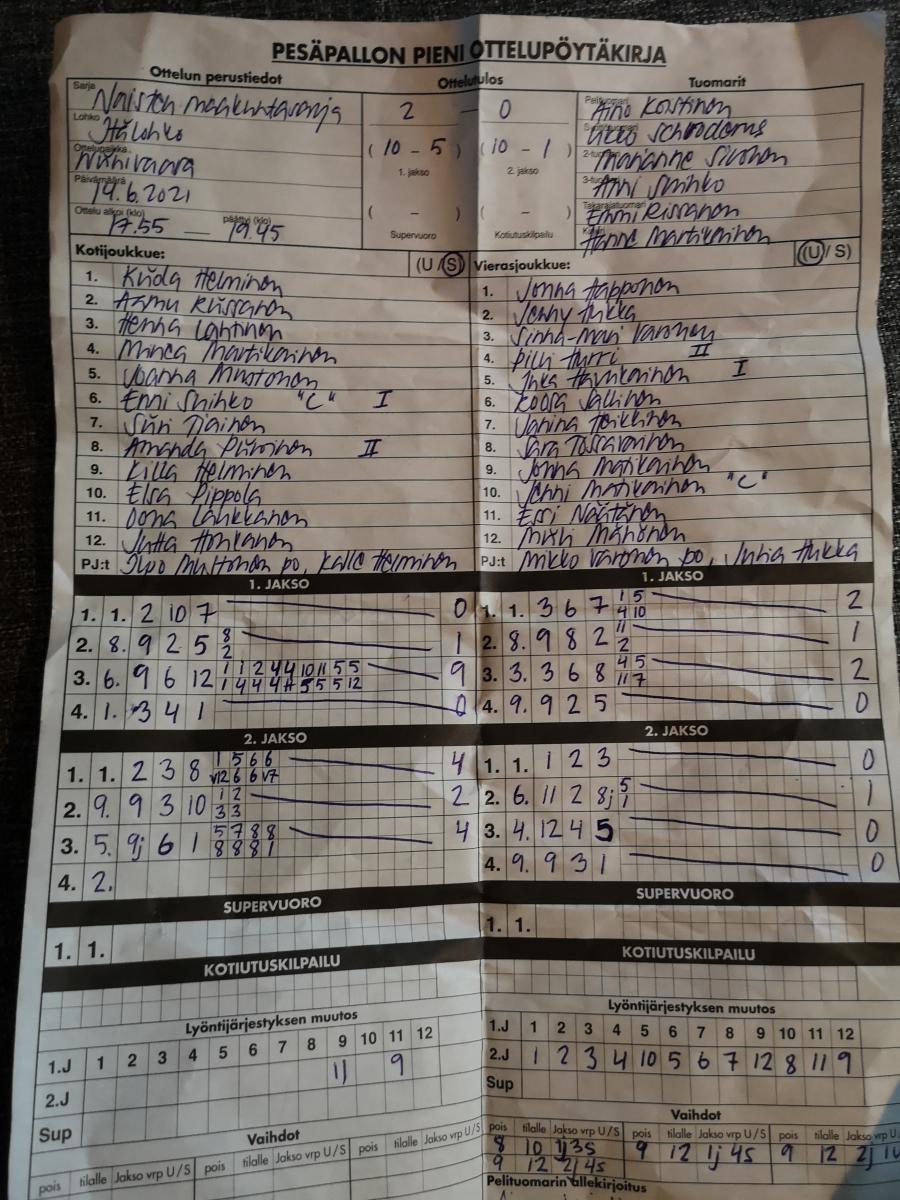 PESÄPALLON PIENI OTTELUPÖYTÄKIRJA
Ottelun perustiedot Ottelutulos Tuomarit
Sarja Naisten maakuntasarja 2 0 Aino Kostinen
Lohko Itälohko Ukko Schroderus
Ottelupaikka Niinivaara (10 - 5) (10 - 1) 2-tuomari Marianne Sivonen
1. jakso 2. jakso
Päivämäärä 14.6.2021 Anni Suihko
Ottelu alkoi (klo) 17.55 — päättyi (klo) 19.45 ( - ) ( - ) Takarajatuomari Emmi Rissanen
Supervuoro Kotiutuskilpailu Hanne Martikainen
Kotijoukkue: (U/S) Vierasjoukkue: (U/S)
1. Kuida Helminen 1. Jonna Tapponen
2. Aamu Rüssanen 2. Jenny Hukka
3. Henna Lantinen 3. Sinna-Mari Varonen
4. Minea Martikainen 4. Pilvi Hurri II
5. Joanna Mustonen 5. Inka Hynninen I
6. Enni Suihko "C" I 6. Roosa Jallinen
7. Siiri Tiainen 7. Janina Heikkinen
8. Amanda Piironen II 8. Sara Tossavainen
9. Killa Helminen 9. Jonna Matikainen
10. Elsa Pippola 10. Jenni Matikainen "C"
11. Oona Laukkanen 11. Essi Näätänen
12. Jutta Honkanen 12. Mixi Mähönen
PJ:t Ilpo Mustonen po, Kalle Helminen PJ:t Mikko Varonen po, Juha Hukka
1. JAKSO 1. JAKSO
1. 1. 2 10 7 0 1. 1. 3 6 7 1 5 2
4 10
2. 8. 9 2 5 8 1 2. 8. 9 8 2 11 1
2 2
3. 6. 9 6 12 1 1 2 4 4 10 11 5 5 9 3. 3. 3 6 8 4 5 2
1 4 4 4 11 5 5 5 12 11 7
4. 1. 3 4 1 0 4. 9. 9 2 5 0
2. JAKSO 2. JAKSO
1. 1. 2 3 8 1 5 6 6 4 1. 1. 1 2 3 0
v12 6 6 v7
2. 9. 9 3 10 1 2 2 2. 6. 11 2 8j 5 1
3 3 1
3. 5. 9j 6 1 5 7 8 8 4 3. 4. 12 4 5 0
8 8 8 1
4. 2. 4. 9. 9 3 1 0
SUPERVUORO SUPERVUORO
1. 1. 1. 1.
KOTIUTUSKILPAILU KOTIUTUSKILPAILU
Lyöntijärjestyksen muutos Lyöntijärjestyksen muutos
1.J 1 2 3 4 5 6 7 8 9 10 11 12 1.J 1 2 3 4 5 6 7 8 9 10 11 12
2.J 11 9 2.J 1 2 3 4 10 5 6 7 12 8 11 9
Sup Sup
Vaihdot Vaihdot
pois tilalle Jakso vrp U/S pois tilalle Jakso vrp U/S pois tilalle Jakso vrp U/S pois tilalle Jakso vrp U/S pois tilalle Jakso vrp U/S pois tilalle Jakso vrp U/
8 10 1j 3s 9 12 1j 4s 9 12 2j 1u
9 12 2j 4s
Pelituomarin allekirjoitus